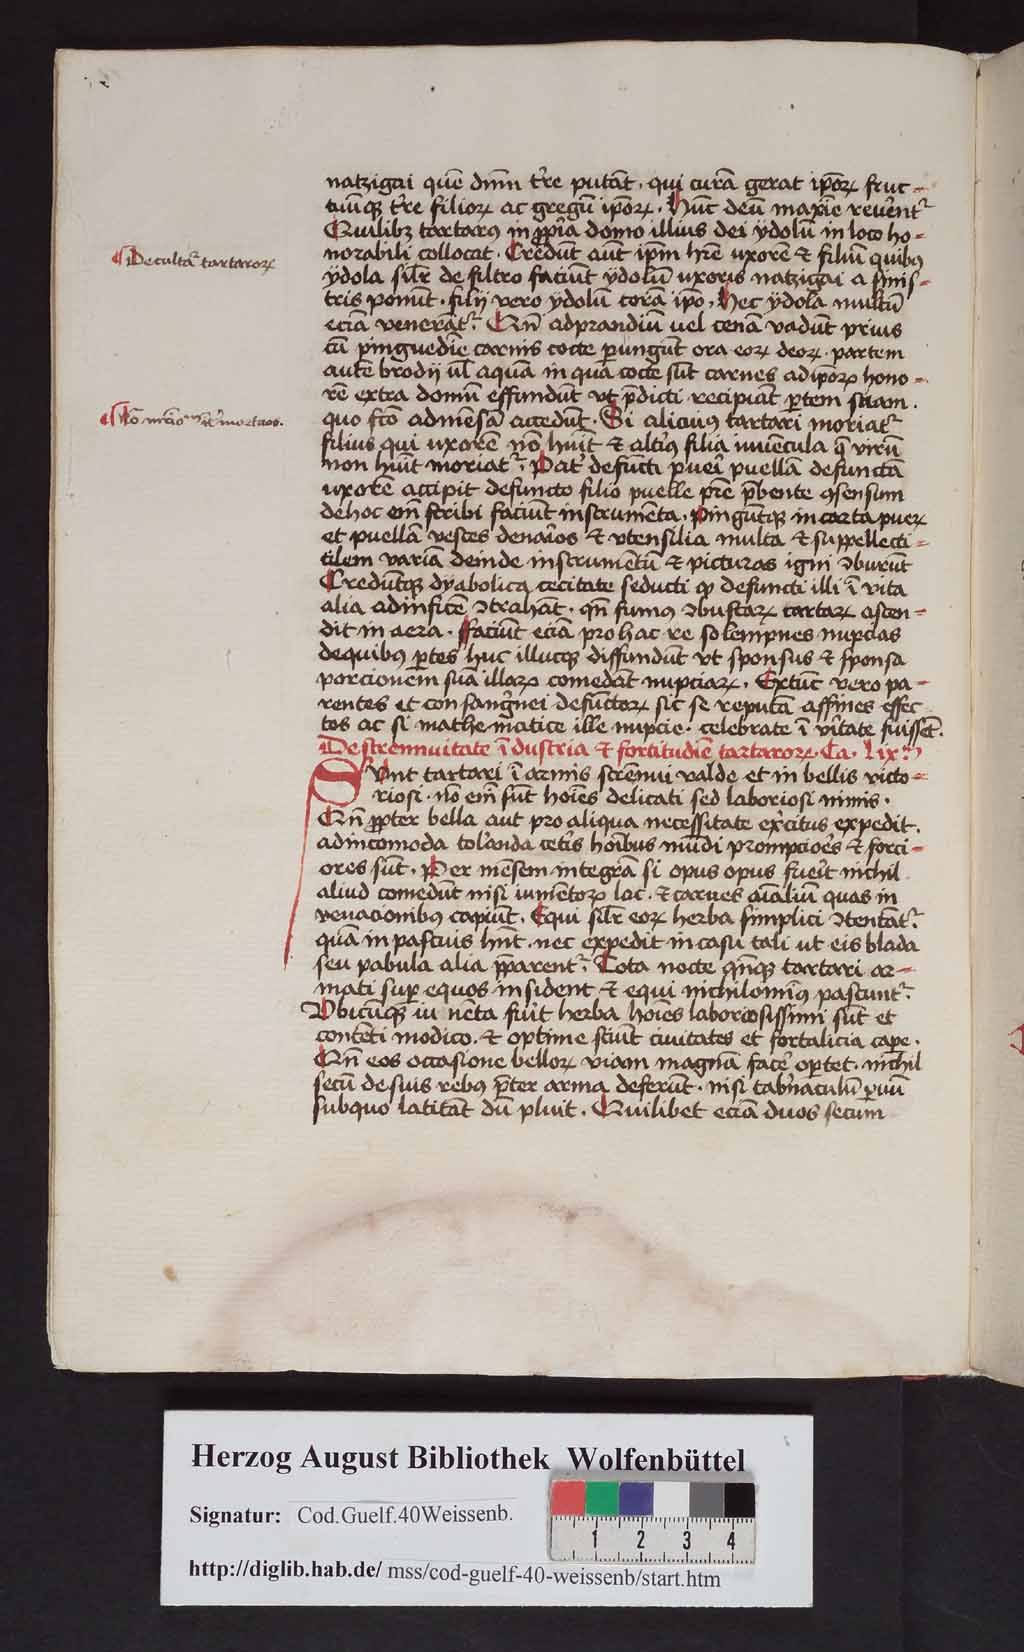 natzigai quē dn̄m t're putāt · qui curā gerat ip̄oꝝ fruc-
tiūqꝫ t're filioꝝ ac gregū ip̄oꝝ · Hūc deū maxīe reuent᷑
Quilibꝫ tartarꝰ in ꝓpria domo illius dei ÿdolū in loco ho-
norabili collocat · Credūt aūt ip̄m hr̄e uxorē ⁊ filiū quibꝰ
De cultā tartaroꝝ
ÿdola sil̄r de filtro faciūt ÿdolū uxoris natzigai a sinis-
tris ponūt · filij vero ydolū corā ip̄o · Hec ÿdola multū
eciā venerāt᷑ · Qn̄ ad prandiū uel cenā vadūt prius
cū pinguedīe carnis cocte perungūt ora eoꝝ deoꝝ · partem
autē brodij ul̄ aquā in qua cocte sūt carnes ad ip̄oꝝ hono-
rē extra domū effundūt ut p̄dicti recipiāt ꝑtem suam ·
quo fc̄o ad mēsā accedūt · Si alicuiꝰ tartari moriat᷑
filius qui uxorē nō huīt ⁊ altiꝰ filia iuuēcula q̄ virū
non huīt moriat᷑ · Pat' defūcti pueri puellā defunctā
uxorē accipit defuncto filio puelle pr̄e p̄bente ꝯsensum
de hoc em̄ scribi faciūt instrumēta · pingūtqꝫ in carta pueꝝ
et puellā vestes denarios ⁊ vtensilia multa ⁊ suppellecti-
tilem variā deinde instrumētū ⁊ picturas igni ꝯburūt
Credūtqꝫ dyabolica cecitate seducti qꝫ defuncti illi ī vita
alia ad infitē ꝯtrahāt · qn̄ fumꝰ ꝯbustaꝝ cartaꝝ ascen-
dit in aera · ffaciūt eciā pro hac re solempnes nupcias
de quibꝰ ꝑtes huc illucqꝫ diffundūt vt sponsus ⁊ sponsa
porcionem suā illaꝝ comedāt nupciaꝝ · Extūc vero pa-
rentes et consangnei defūctoꝝ sic se reputā affines effec
tos ac si mathe maticē ille nupcie · celebrate ī v'itate fuissēt ·
De strennuitate īdustria ⁊ fortitudīe tartaroꝝ · Ca · lix᷑
Sunt tartari ī armis strēnui valde et in bellis victo-
riosi · nō em̄ sūt hoīes delicati sed laboriosi nimis ·
Qn̄ ꝓpter bella aut pro aliqua necessitate exrcitus expedit ·
ad incomoda tol'anda cet'is hoībus mūdi prompcioēs ⁊ forci-
ores sūt · Per mēsem integrā si opus opus fuerit nichil
aliud comedūt nisi iumētoꝝ lac · ⁊ carnes aīaliū quas in
venacionibꝰ capiūt · Equi sil̄r eoꝝ herba simplici ꝯtentāt᷑ ·
quā in pascuis hn̄t · nec expedit in casu tali ut eis blada
seu pabula alia ꝓparent᷑ · Tota nocte qn̄qꝫ tartari ar-
mati super equos insident ⁊ equi nichilominꝰ pascunt᷑ ·
Vbicūqꝫ iu nēta fuīt herba hoīes laboriosissimi sūt et
contēti modico · ⁊ optime sciūt ciuitates et fortalicia cape ·
Qn̄ eos occasione belloꝝ viam magnā facere oꝑtet · nichil
secū de suis rebꝰ p̄ter arma deferūt · nisi tab'naculū ꝑuū
sub quo latitāt dū pluit · Quilibet eciā duos secum
Herzog August Bibliothek Wolfenbüttel
Signatur: Cod.Guelf.40Weissenb.
http://diglib.hab.de/ mss/cod-guelf-40-weissenb/start.htm
1 2 3 4